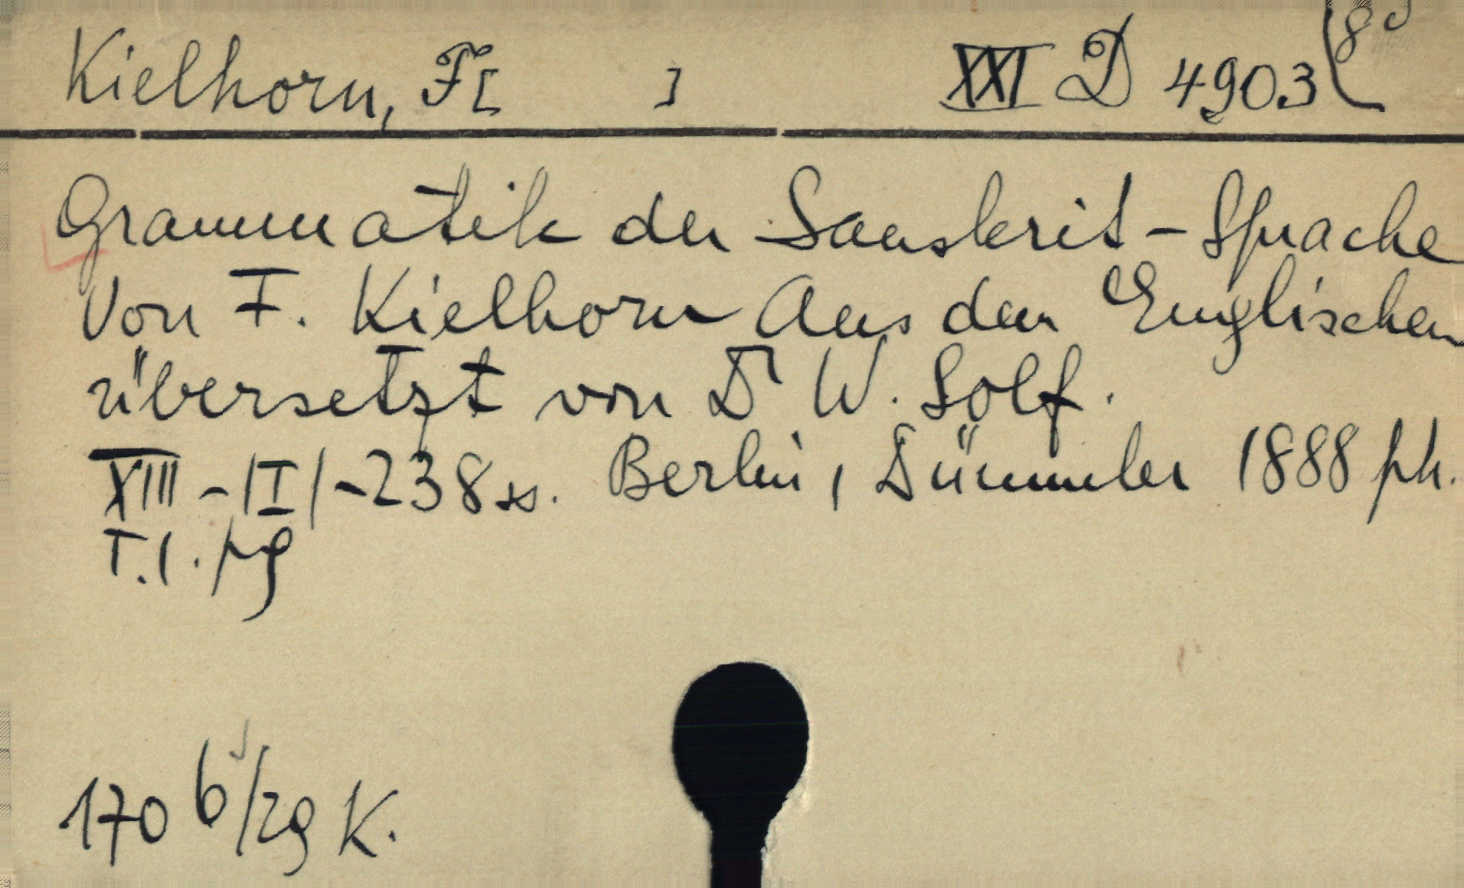 Kielhorn, F[ ] XXI D 4903 (8°
Grammatik der Sanskrit-Sprache
Von F. Kielhorn Aus dem Englischen
übersetzt von Dr W. Solf.
XIII-|I|-238 s. Berlin, Dümmler 1888 ph.
T.l. pg
170 b/29 K.